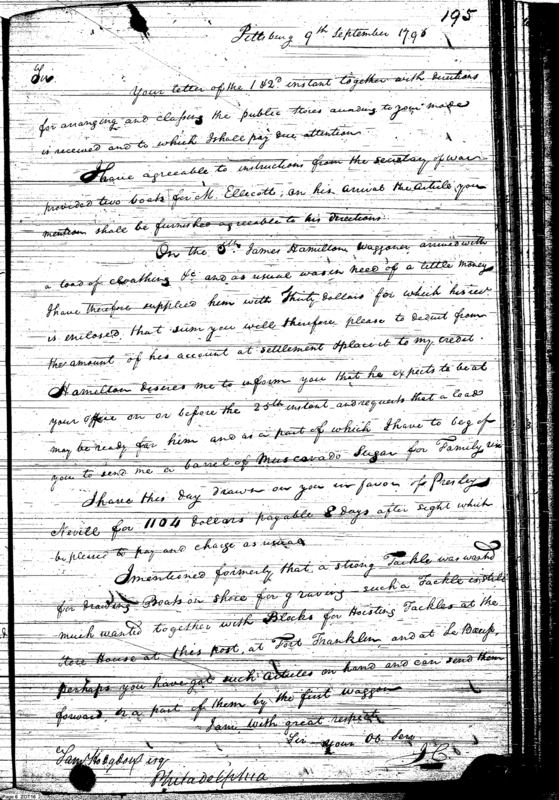 195
Pittsburg 9th September 1796
Sir
Your letter of the 1 & 2d instant together with directions
for arranging and classing the public stores according to your mode
is received and to which I shall pay due attention
I have agreeable to instructions from the secretary of war
provided two boats for M. Ellicott; on his arrival the article you
mention shall be furnished agreeable to his directions.
On the 5th James Hamilton Waggoner arrived with
a load of cloathing &c and as usual was in need of a little money
I have therefore supplied him with thirty dollars for which his
is enclosed that sum you will therefore please to deduct from
the amount of his account at settlement & place it to my credit.
Hamilton desires me to inform you that he expects to be at
your office on or before the 25th instant and requests that a load
may be ready for him and as a part of which I have to beg of
you to send me a barrel of Muscavado Sugar for Family use
I have this day drawn on you in favor of Presley
Nevill for 1104 dollars payable 8 days after sight which
be pleased to pay and charge as usual
I mentioned formerly that a strong Tackle was wanted
for drawing Boats on shore for graving such a Tackle is still
much wanted together with Blocks for Hoisting Tackles at the
Store House at this post, at Fort Franklin and at Le Bœuf,
perhaps you have got such articles on hand and can send them
forward, or a part of them by the first waggon
I am with great respect
Sir your Ob Serv
Saml Hodgdon esq
Philadelphia